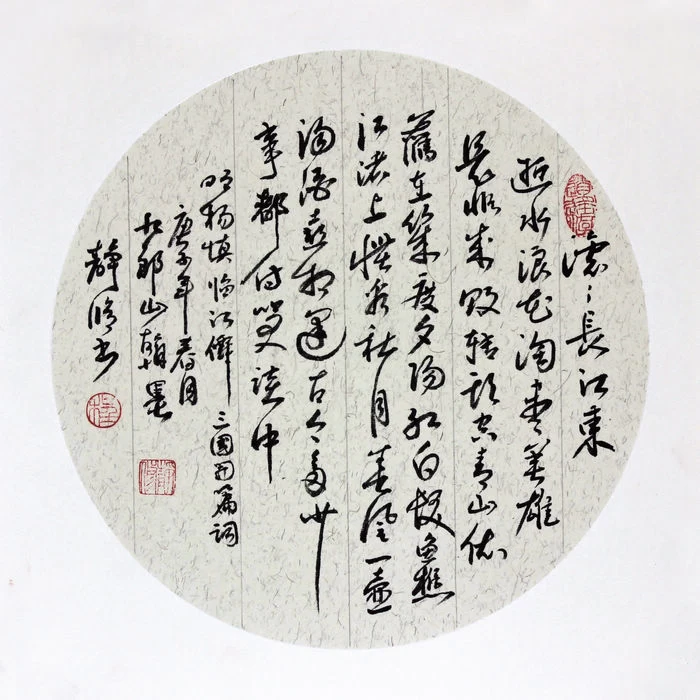 滚〻長江東
逝水浪花淘盡英雄
是非成敗轉頭空青山依
舊在幾度夕陽紅白髮漁樵
江渚上慣看秋月春風一壺
濁酒喜相逢古今多少
事都付笑談中
明楊慎臨江僊 三國開篇詞
庚子年春月
九郎山翰墨
靜修書